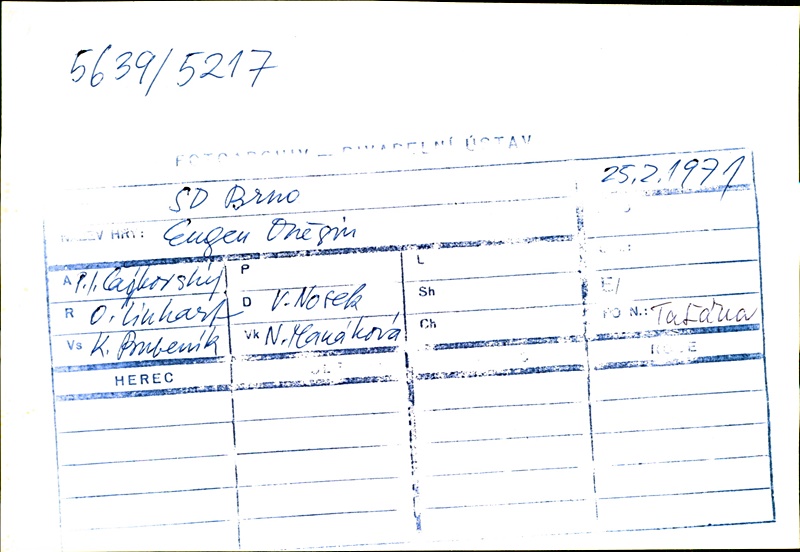 5639/5217
FOTOARCHIV – DIVADELNÍ ÚSTAV
SD Brno 25.2.1971
NÁZEV HRY: Eugen Oněgin
A P.I. Čajkovský P L
R O. Linhart D V. Nosek Sh
Vs K. Bubeník Vk N. Hanáková Ch
PO N.: Taťána
HEREC ROLE